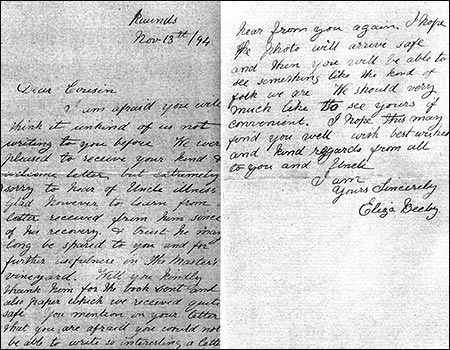 Raunds
Nov 13th/94
Dear Cousin
I am afraid you will
think it unkind of us not
writing to you before We were
pleased to receive your kind &
letter, but extremely
sorry to hear of Uncle illness
glad however to learn from
letter received from him since
of his recovery. & trust he may
long be spared to you and for
further usefulness in the Master's
vineyard. Will you kindly
thank him for the book sent and
also paper which we received quite
safe You mention in your letter
that you are afraid you could not
be able to write so interesting a letter
hear from you again. I hope
the photo will arrive safe
and then you will be able to
see something like the kind of
folk we are We should very
much like to see yours if
convenient. I hope this may
find you well with best wishes
and kind regards from all
to you and Uncle
I am
Yours Sincerely
Eliza Beeby